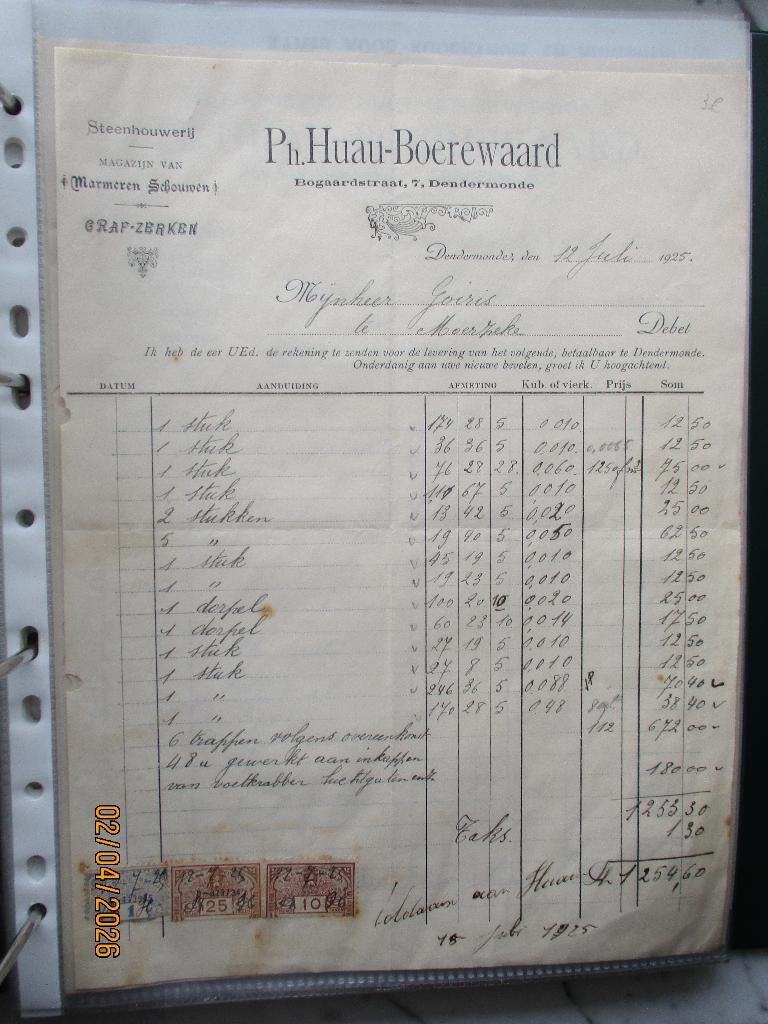 Steenhouwerij
MAGAZIJN VAN
Marmeren Schouwen
GRAF-ZERKEN
Ph. Huau-Boerewaard
Bogaardstraat, 7, Dendermonde
Dendermonde, den 12 Juli 1925.
Mijnheer Goiris
te Moerzeke Debet
Ik heb de eer UEd. de rekening te zenden voor de levering van het volgende, betaalbaar te Dendermonde.
Onderdanig aan uwe nieuwe bevelen, groet ik U hoogachtend.
DATUM AANDUIDING AFMETING Kub. of vierk. Prijs Som
1 stuk 174 28 5 0.010 12 50
1 stuk 36 36 5 0,010 12 50
1 stuk 76 28 28 0,060 75 00
1 stuk 67 5 0,010 12 50
2 stukken 13 42 5 0,020 25 00
5 " 19 40 5 0,050 62 50
1 stuk 45 19 5 0,010 12 50
1 " 19 23 5 0,010 12 50
1 dorpel 100 20 10 0,020 25 00
1 dorpel 60 23 10 0,014 17 50
1 stuk 27 19 5 0,010 12 50
1 stuk 27 8 5 0,010 12 50
1 " 246 36 5 0,088 70 40
1 " 170 28 5 0,48 38 40
6 trappen volgens overeenkomst 112 672 00
48 u gewerkt aan inkappen
van voetkrabber luchtgaten enz. 180 00
1253 30
Taks. 1 30
Fr. 1254,60
Voldaan aan Huau
15 Juli 1925
12-7-25
12-7-25
25
12-7-25
10
02/04/2026